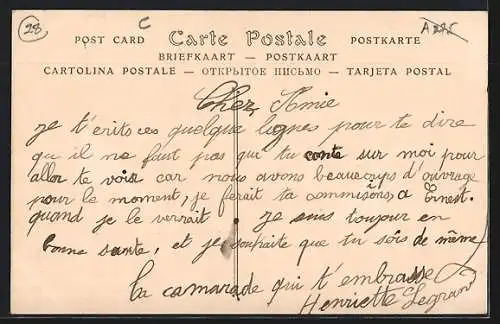 28
C
A 225
POST CARD Carte Postale POSTKARTE
BRIEFKAART — POSTKAART
CARTOLINA POSTALE — ОТКРЫТОЕ ПИСЬМО — TARJETA POSTAL
Cher Amie
je t'érits ces quelque lignes pour te dire
qu il ne faut pas qui tu conte sur moi pour
aller te voir car nous avons beaucoups d'ouvrage
pour le moment, je ferait ta commisions, a Ernest.
quand je le verrait je suis toujour en
bonne sante, et je souhaite que tu sois de même
ta camarade qui t'embrasse
Henriette Legrand